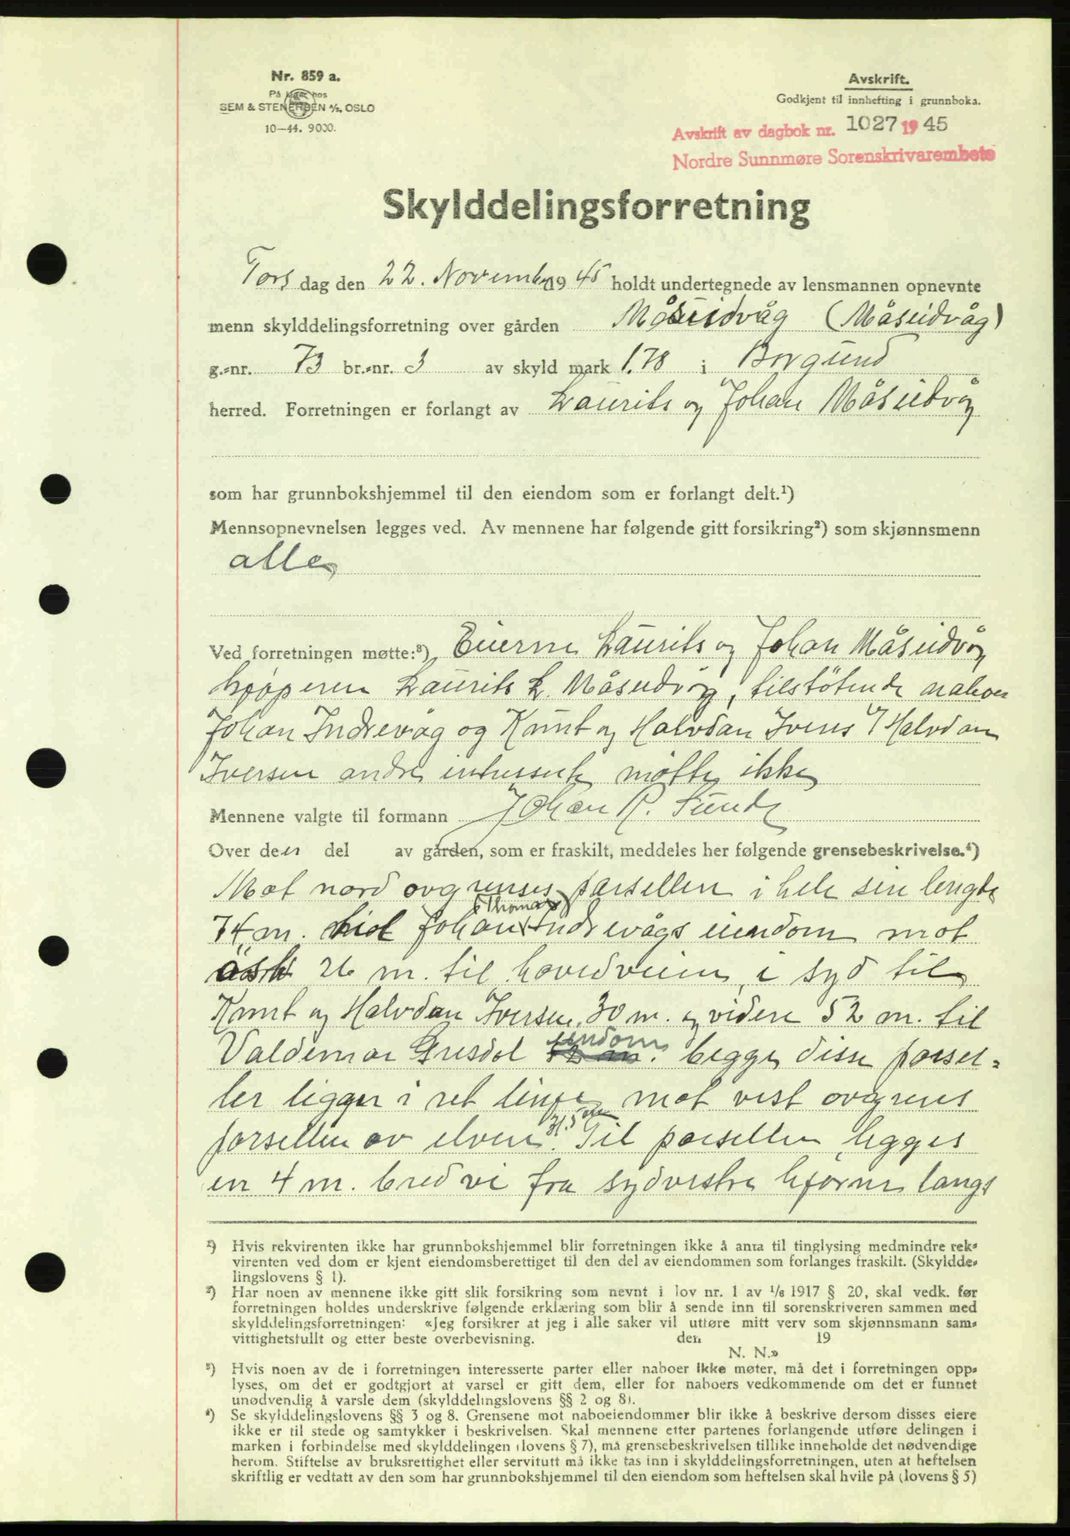 Nr. 859 a.
På lager hos
SEM & STENERSEN A/S, OSLO
10—44. 9000.
Avskrift.
Godkjent til innhefting i grunnboka.
Avskrift av dagbok nr. 1027 1945
Nordre Sunnmøre Sorenskrivarembete
Skylddelingsforretning
Tors dag den 22. November 1945 holdt undertegnede av lensmannen opnevnte
menn skylddelingsforretning over gården Måseidvåg (Måseidvåg)
g.-nr. 73 br.-nr. 3 av skyld mark 1.78 i Borgund
herred. Forretningen er forlangt av Laurits og Johan Måseidvåg
som har grunnbokshjemmel til den eiendom som er forlangt delt.¹)
Mennsopnevnelsen legges ved. Av mennene har følgende gitt forsikring²) som skjønnsmenn
alle
Ved forretningen møtte:³) Eierne Laurits og Johan Måseidvåg
kjøperen Laurits L. Måseidvåg, tilstøtende naboer
Johan Indrevåg og Knut og Halvdan Ivers Halvdan
Iversen andre intressente møtte ikke
Mennene valgte til formann Johan R. Sunde
Over den del av gården, som er fraskilt, meddeles her følgende grensebeskrivelse.⁴)
Mot nord avgrenses parsellen i hele sin lengde
74 m. Johan (Thomas) Indrevågs eiendom mot
øst 26 m. til hovedveien, i syd til
Knut og Halvdan Iversen 30 m. og videre 52 m. til
Valdemar Gresdal eiendom. begge disse parsel-
ler ligger i ret linje mot vest avgrens
parsellen av elven 31.5 m. Til parsellen legges
en 4 m. bred vei fra sydvestre hjørne langs
¹) Hvis rekvirenten ikke har grunnbokshjemmel blir forretningen ikke å anta til tinglysing medmindre rek-
virenten ved dom er kjent eiendomsberettiget til den del av eiendommen som forlanges fraskilt. (Skyldde-
lingslovens § 1).
²) Har noen av mennene ikke gitt slik forsikring som nevnt i lov nr. 1 av 1/6 1917 § 20, skal vedk. før
forretningen holdes underskrive følgende erklæring som blir å sende inn til sorenskriveren sammen med
skylddelingsforretningen: «Jeg forsikrer at jeg i alle saker vil utføre mitt verv som skjønnsmann sam-
vittighetsfullt og etter beste overbevisning. den 19
N. N.»
³) Hvis noen av de i forretningen interesserte parter eller naboer ikke møter, må det i forretningen opp-
lyses, om det er godtgjort at varsel er gitt dem, eller for naboers vedkommende om det er funnet
unødvendig å varsle dem (skylddelingslovens §§ 2 og 8).
⁴) Se skylddelingslovens §§ 3 og 8. Grensene mot naboeiendommer blir ikke å beskrive dersom disses eiere
ikke er til stede og samtykker i beskrivelsen. Skal mennene etter partenes forlangende utføre delingen i
marken i forbindelse med skylddelingen (lovens § 7), må grensebeskrivelsen tillike inneholde det nødvendige
herom. Stiftelse av bruksrettighet eller servitutt må ikke tas inn i skylddelingsforretningen, uten at heftelsen
skriftlig er vedtatt av den som har grunnbokshjemmel til den eiendom som heftelsen skal hvile på (lovens § 5)